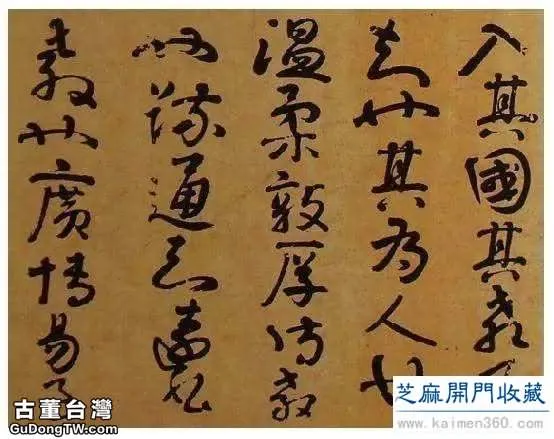 入其國其教可
知也其為人也
溫柔敦厚詩教
也疏通知遠書
教也廣博易良
古董台灣
GuDongTW.com
芝麻開門收藏
www.kaimen360.com